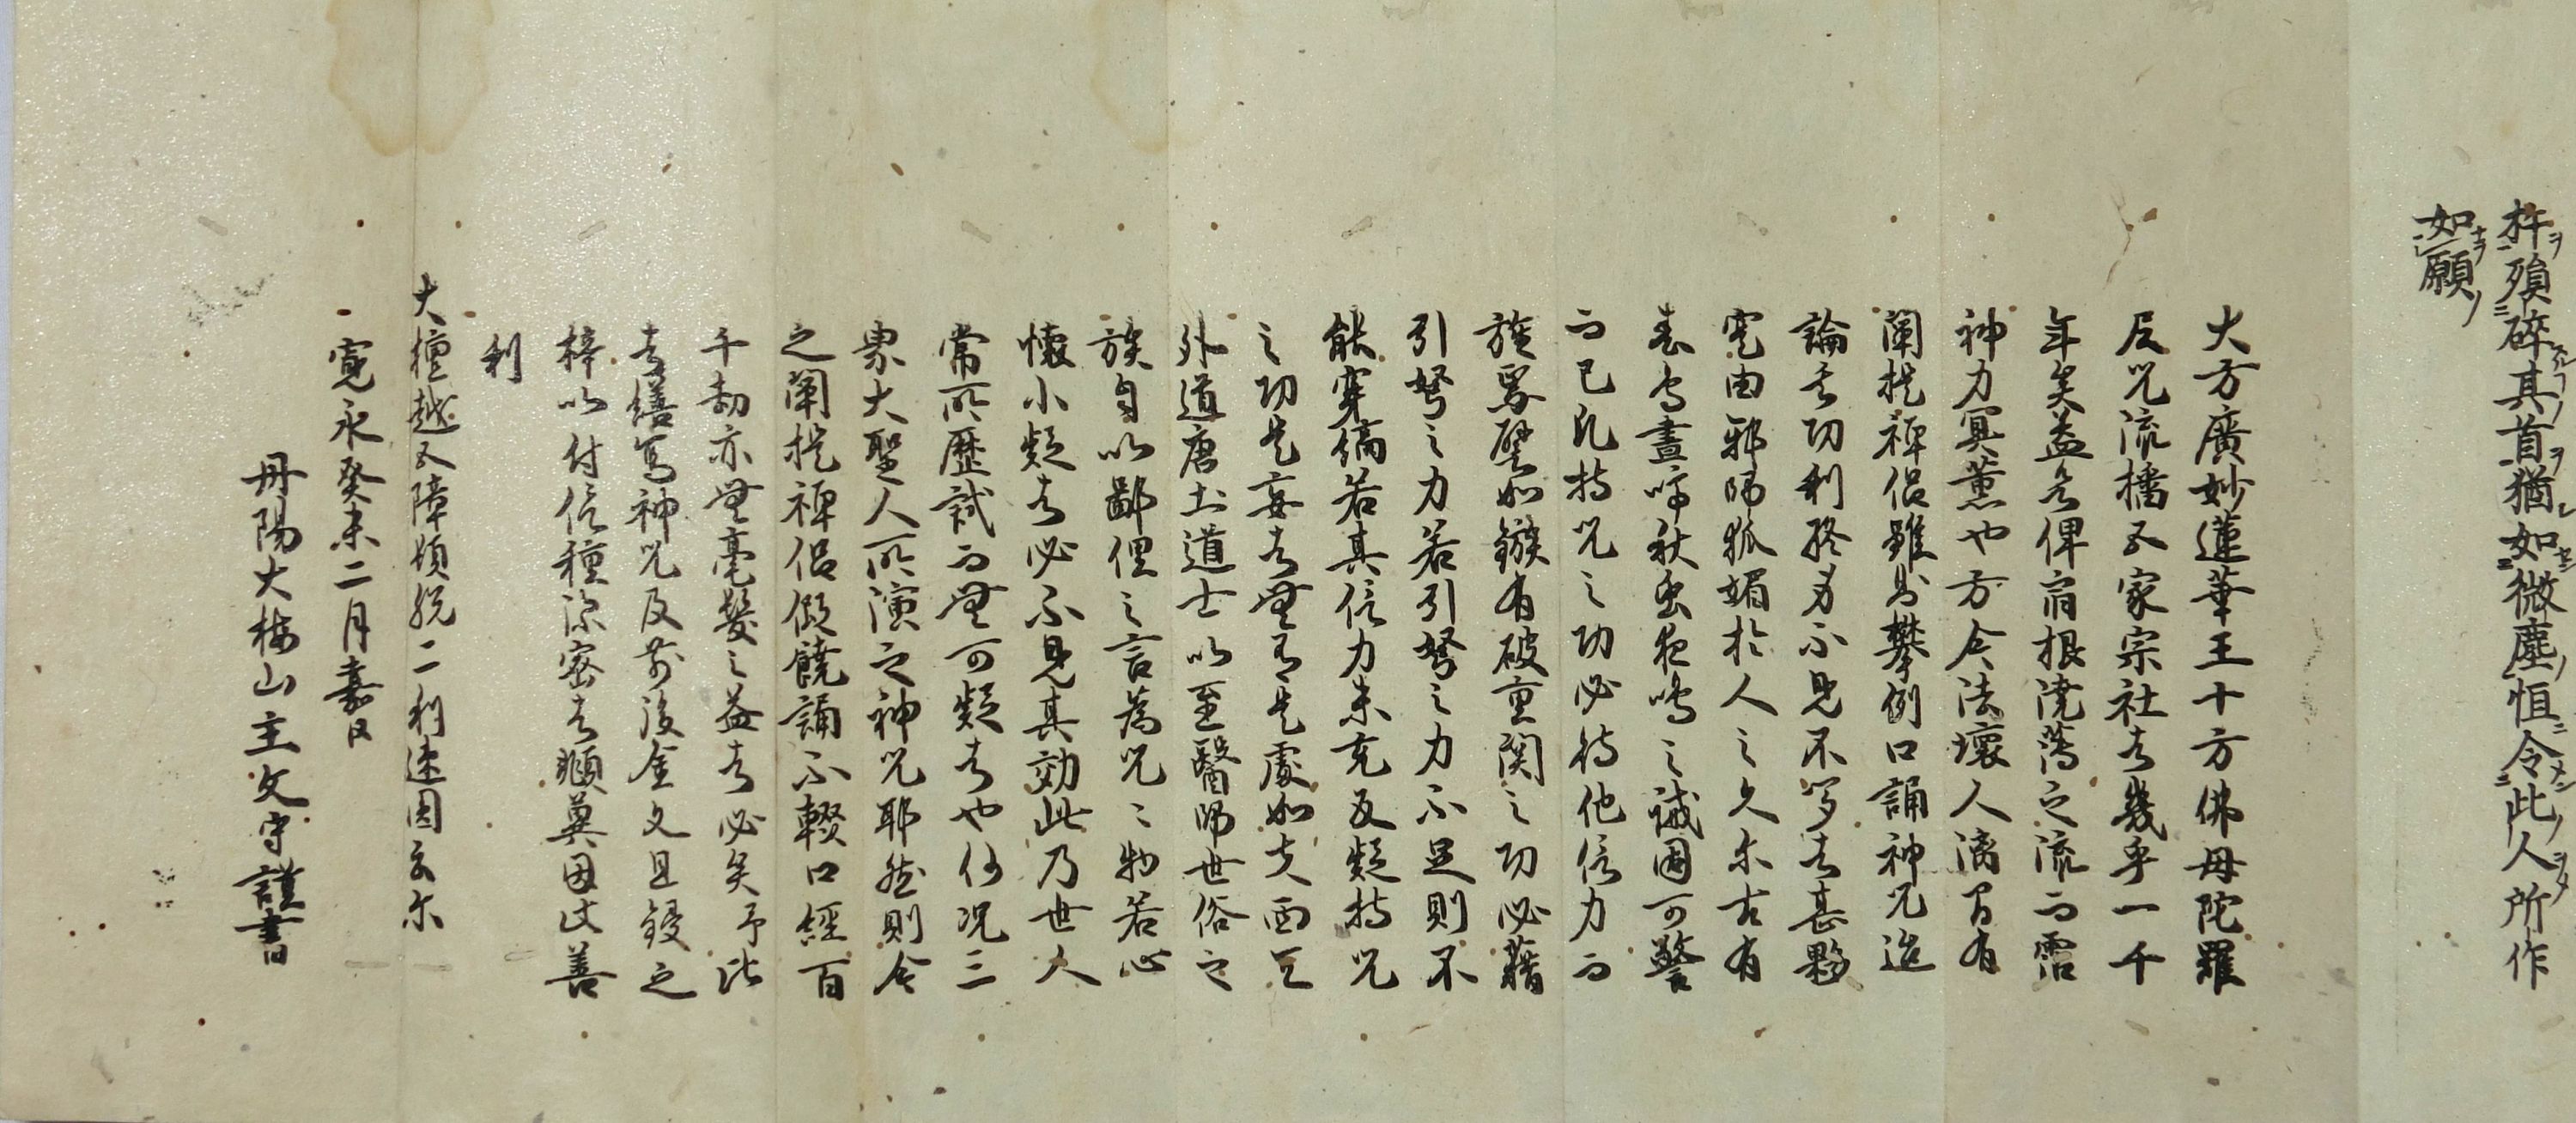 杵ヲ殞碎其首ヲ猶如微塵恒令此人所作
如願
大方廣妙蓮華王十方佛母陀羅
尼咒流播五家宗社者幾乎一千
年矣益者俾盲根浇薄之流而霑
神力冥薫也方今法壞人漓間有
闡提禪侶雖為攀例口誦神咒迨
論者功利終身不見不罕者甚夥
寔由邪師狐媚於人之久尓古有
春鳥晝啼秋虫夜鳴之誡固可警
而已凡持咒之功必待他信力而
旋焉譬如鏃有破重関之功必藉
引弩之力若引弩之力不足則不
能穿縞若其信力未充反疑持咒
之功是妄者無有是處如夫西天
外道唐土道士以至醫師世俗之
族自以鄙俚之言為咒々物若心
懐小疑者必不見其効此乃世人
常所歴試而無可疑者也何况三
界大聖人所演之神咒耶然則令
之闡提禪侶假饒誦不輟口經百
千劫亦無毫髮之益者必矣予比
者繕寫神咒及前後金文且鋟之
梓以付信種深密者願冀因此善
利
大檀越五障頓脱二利速圓云尓
寛永癸未二月嘉日
丹陽大梅山主文守謹書